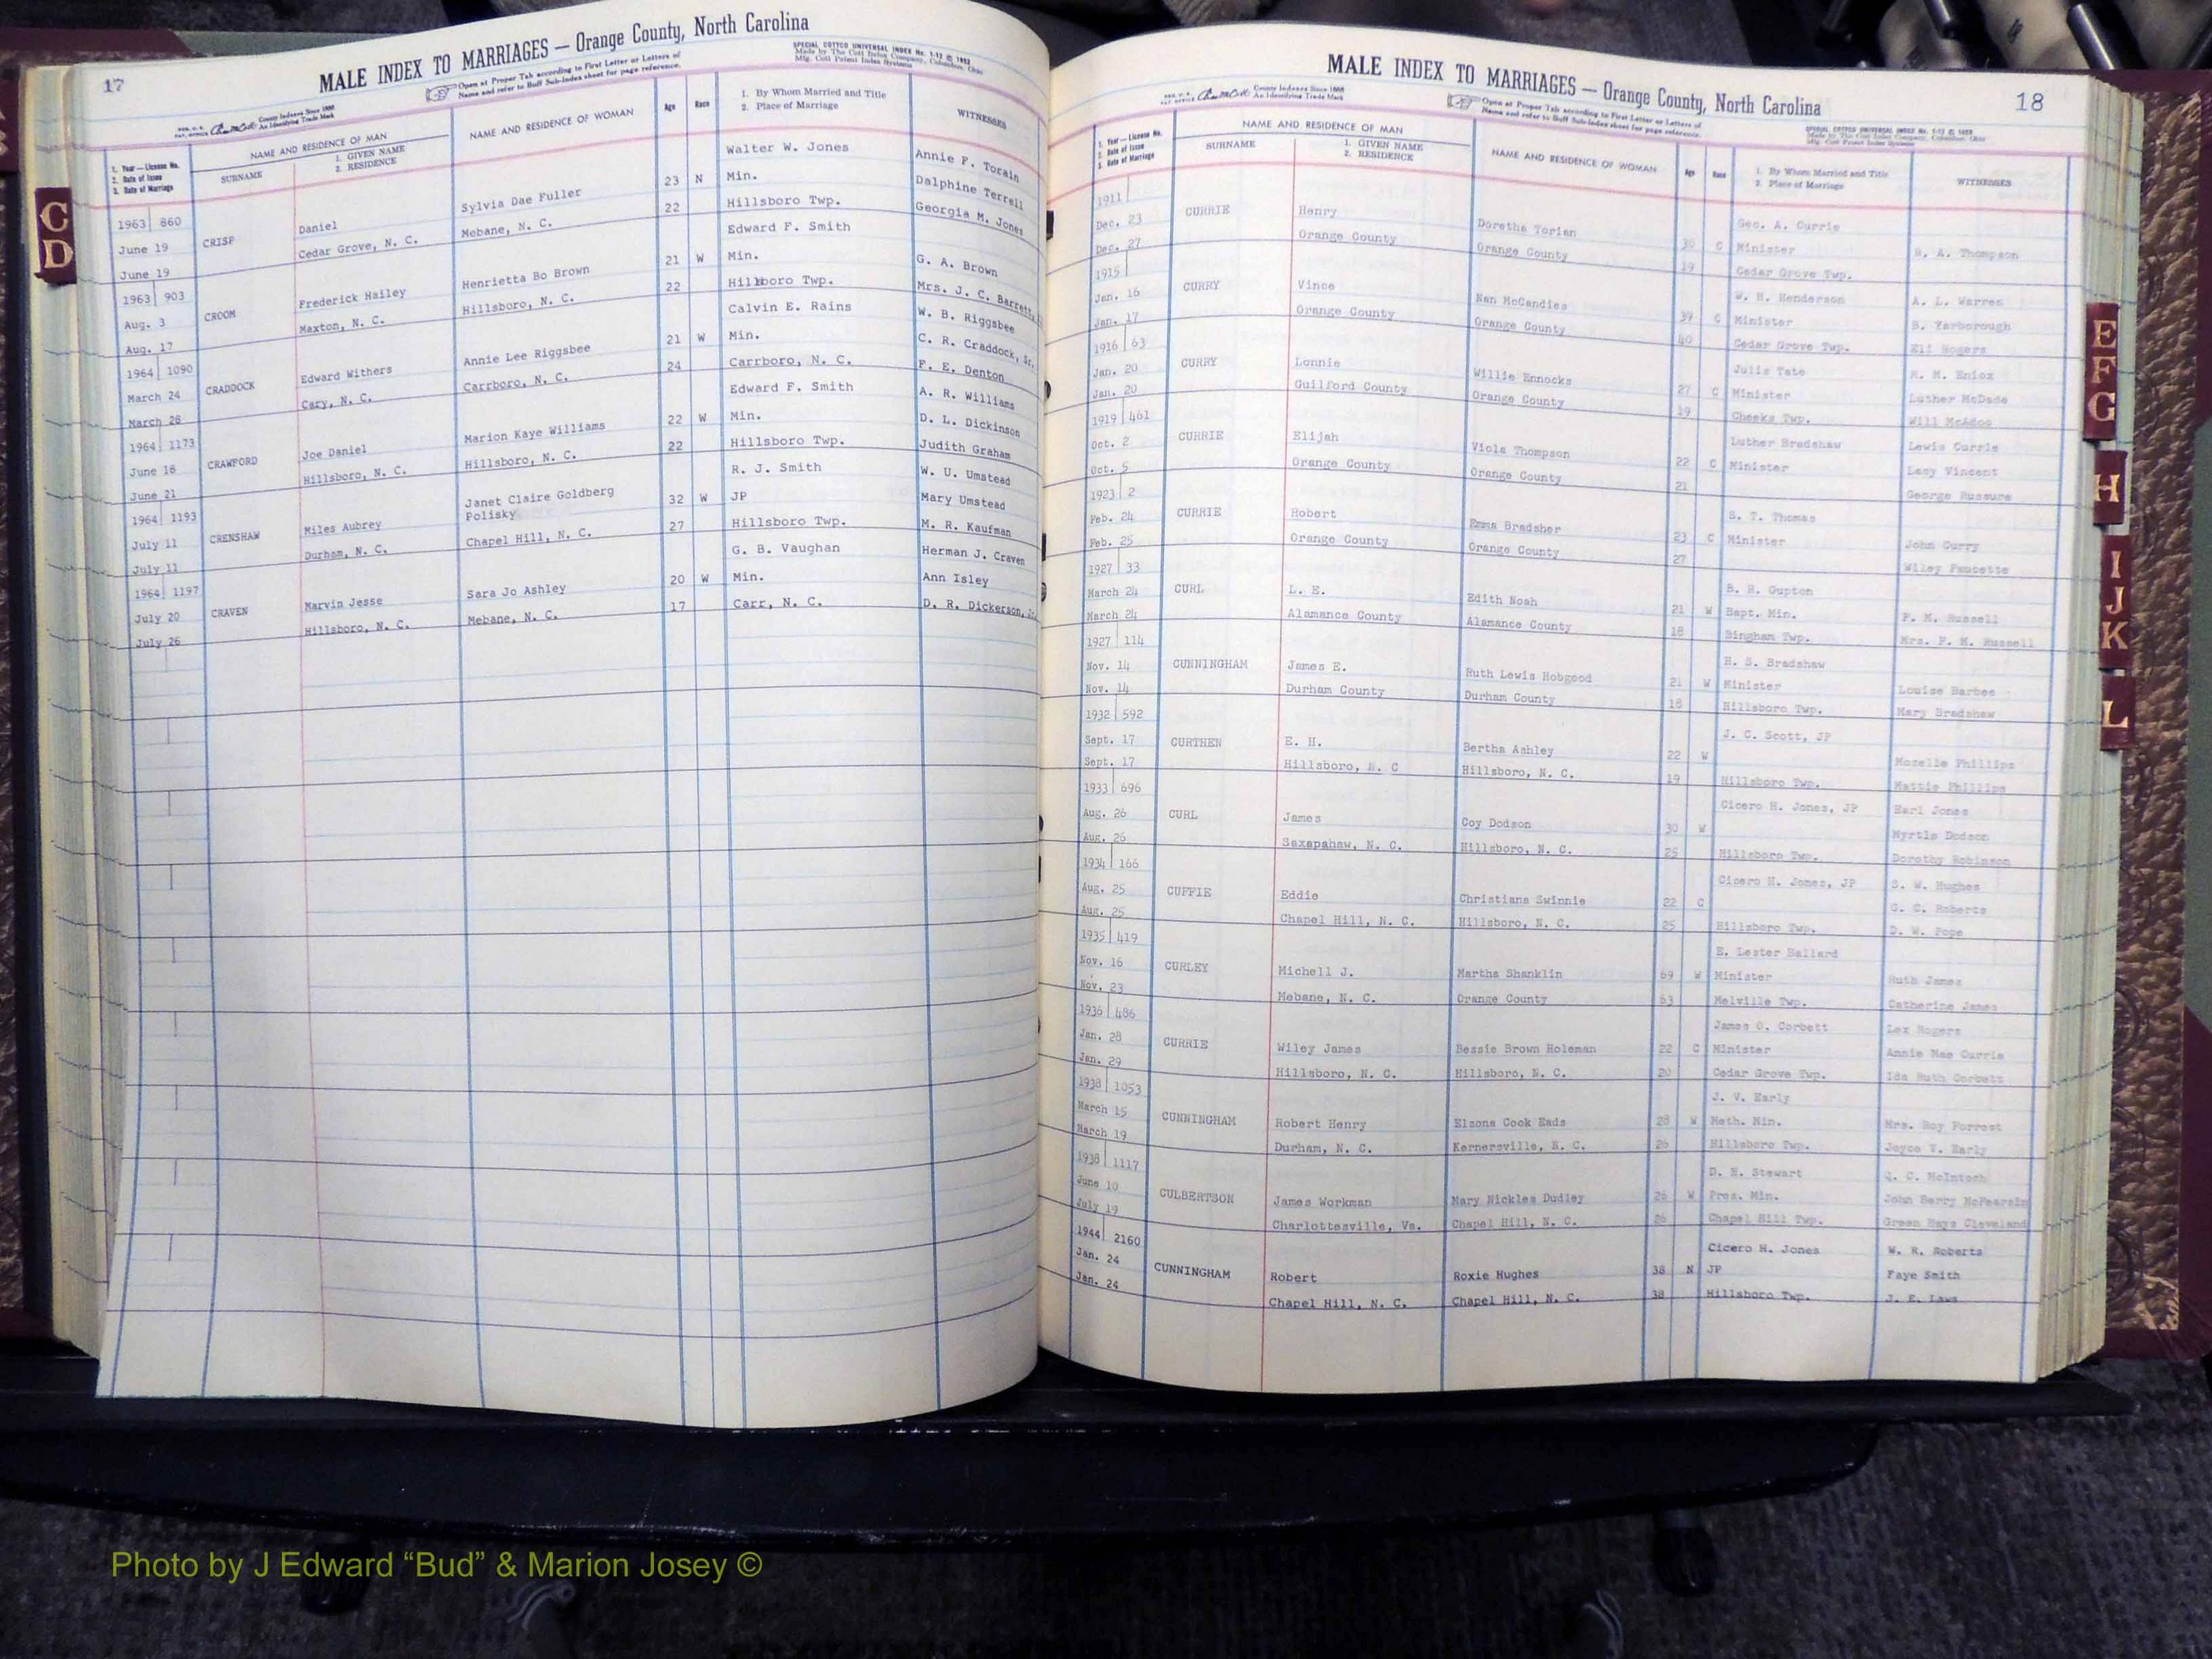 17
MALE INDEX TO MARRIAGES — Orange County, North Carolina
Open at Proper Tab according to First Letter or Letters of
Name and refer to Buff Sub-Index sheet for page reference.
SPECIAL COTTCO UNIVERSAL INDEX No. 1-12 © 1952
Made by The Cott Index Company, Columbus, Ohio
Mfg. Cott Patent Index Systems
REG. U. S. PAT. OFFICE
County Indexes Since 1888
An Identifying Trade Mark
1. Year—License No.
2. Date of Issue
3. Date of Marriage
NAME AND RESIDENCE OF MAN
SURNAME
1. GIVEN NAME
2. RESIDENCE
NAME AND RESIDENCE OF WOMAN
Age
Race
1. By Whom Married and Title
2. Place of Marriage
WITNESSES
1963 860 Walter W. Jones Annie P. Torain
June 19 CRISP Daniel Sylvia Dae Fuller 23 N Min. Dalphine Terrell
June 19 Cedar Grove, N. C. Mebane, N. C. 22 Hillsboro Twp. Georgia M. Jones
1963 903 Edward F. Smith
Aug. 3 CROOM Frederick Hailey Henrietta Bo Brown 21 W Min. G. A. Brown
Aug. 17 Maxton, N. C. Hillsboro, N. C. 22 Hillsboro Twp. Mrs. J. C. Barrett,
1964 1090 Calvin E. Rains W. B. Riggsbee
March 24 CRADDOCK Edward Withers Annie Lee Riggsbee 21 W Min. C. R. Craddock, Sr.
March 28 Cary, N. C. Carrboro, N. C. 24 Carrboro, N. C. F. E. Denton
1964 1173 Edward F. Smith A. R. Williams
June 18 CRAWFORD Joe Daniel Marion Kaye Williams 22 W Min. D. L. Dickinson
June 21 Hillsboro, N. C. Hillsboro, N. C. 22 Hillsboro Twp. Judith Graham
1964 1193 Janet Claire Goldberg R. J. Smith W. U. Umstead
July 11 CRENSHAW Miles Aubrey Polisky 32 W JP Mary Umstead
July 11 Durham, N. C. Chapel Hill, N. C. 27 Hillsboro Twp. M. R. Kaufman
1964 1197 G. B. Vaughan Herman J. Craven
July 20 CRAVEN Marvin Jesse Sara Jo Ashley 20 W Min. Ann Isley
July 26 Hillsboro, N. C. Mebane, N. C. 17 Carr, N. C. D. R. Dickerson, Jr.
C
D
MALE INDEX TO MARRIAGES — Orange County, North Carolina
18
REG. U. S. PAT. OFFICE
County Indexes Since 1888
An Identifying Trade Mark
Open at Proper Tab according to First Letter or Letters of
Name and refer to Buff Sub-Index sheet for page reference.
SPECIAL COTTCO UNIVERSAL INDEX No. 1-12 © 1952
Made by The Cott Index Company, Columbus, Ohio
Mfg. Cott Patent Index Systems
1. Year—License No.
2. Date of Issue
3. Date of Marriage
NAME AND RESIDENCE OF MAN
SURNAME
1. GIVEN NAME
2. RESIDENCE
NAME AND RESIDENCE OF WOMAN
Age
Race
1. By Whom Married and Title
2. Place of Marriage
WITNESSES
1911 Geo. A. Currie
Dec. 23 CURRIE Henry Dorethe Torian 30 C Minister A. Thompson
Dec. 27 Orange County Orange County 19 Cedar Grove Twp.
1915 W. H. Henderson A. L. Warren
Jan. 16 CURRY Vince Nan McCandies 39 C Minister B. Yarborough
Jan. 17 Orange County Orange County 40 Cedar Grove Twp. Eli Rogers
1916 63 Julis Tate M. Eniox
Jan. 20 CURRY Lonnie Willie Ennocks 27 C Minister Luther McDade
Jan. 20 Guilford County Orange County 19 Cheeks Twp. Will McAdoo
1919 461 Luther Bradshaw Lewis Currie
Oct. 2 CURRIE Elijah Viola Thompson 22 C Minister Lacy Vincent
Oct. 5 Orange County Orange County 21 George Russure
1923 2 S. T. Thomas
Feb. 24 CURRIE Robert Emma Bradsher 23 C Minister John Curry
Feb. 25 Orange County Orange County 27 Wiley Faucette
1927 33 B. H. Gupton
March 24 CURL L. E. Edith Noah 21 W Bapt. Min. F. M. Russell
March 24 Alamance County Alamance County 18 Bingham Twp. Mrs. F. M. Russell
1927 114 H. S. Bradshaw
Nov. 14 CUNNINGHAM James E. Ruth Lewis Hobgood 21 W Minister Louise Barbee
Nov. 14 Durham County Durham County 18 Hillsboro Twp. Mary Bradshaw
1932 592 J. C. Scott, JP
Sept. 17 CURTHEN E. H. Bertha Ashley 22 W Mozelle Phillips
Sept. 17 Hillsboro, N. C Hillsboro, N. C. 19 Hillsboro Twp. Mattie Phillips
1933 696 Cicero H. Jones, JP Earl Jones
Aug. 26 CURL James Coy Dodson 30 W Myrtle Dodson
Aug. 26 Saxapahaw, N. C. Hillsboro, N. C. 25 Hillsboro Twp. Dorothy Robinson
1934 166 Cicero H. Jones, JP S. W. Hughes
Aug. 25 CUFFIE Eddie Christiana Swinnie 22 C G. C. Roberts
Aug. 25 Chapel Hill, N. C. Hillsboro, N. C. 25 Hillsboro Twp. D. W. Pope
1935 419 E. Lester Ballard
Nov. 16 CURLEY Michell J. Martha Shanklin 69 W Minister Ruth James
Nov. 23 Mebane, N. C. Orange County 63 Melville Twp. Catherine James
1936 486 James O. Corbett Lex Rogers
Jan. 28 CURRIE Wiley James Bessie Brown Holeman 22 C Minister Annie Mae Currie
Jan. 29 Hillsboro, N. C. Hillsboro, N. C. 20 Cedar Grove Twp. Ida Ruth Corbett
1938 1053 J. V. Early
March 15 CUNNINGHAM Robert Henry Elzona Cook Eads 28 W Meth. Min. Mrs. Roy Forrest
March 19 Durham, N. C. Kernersville, N. C. 26 Hillsboro Twp. Joyce V. Early
1938 1117 D. H. Stewart Q. C. McIntoch
June 10 CULBERTSON James Workman Mary Nickles Dudley 26 W Pres. Min. John Berry McFearsin
July 19 Charlottesville, Va. Chapel Hill, N. C. 26 Chapel Hill Twp. Green Hays Cleveland
1944 2160 Cicero H. Jones W. R. Roberts
Jan. 24 CUNNINGHAM Robert Roxie Hughes 38 N JP Faye Smith
Jan. 24 Chapel Hill, N. C. Chapel Hill, N. C. 38 Hillsboro Twp. J. E. Laws
E
F
G
H
I
J
K
L
Photo by J Edward “Bud” & Marion Josey ©